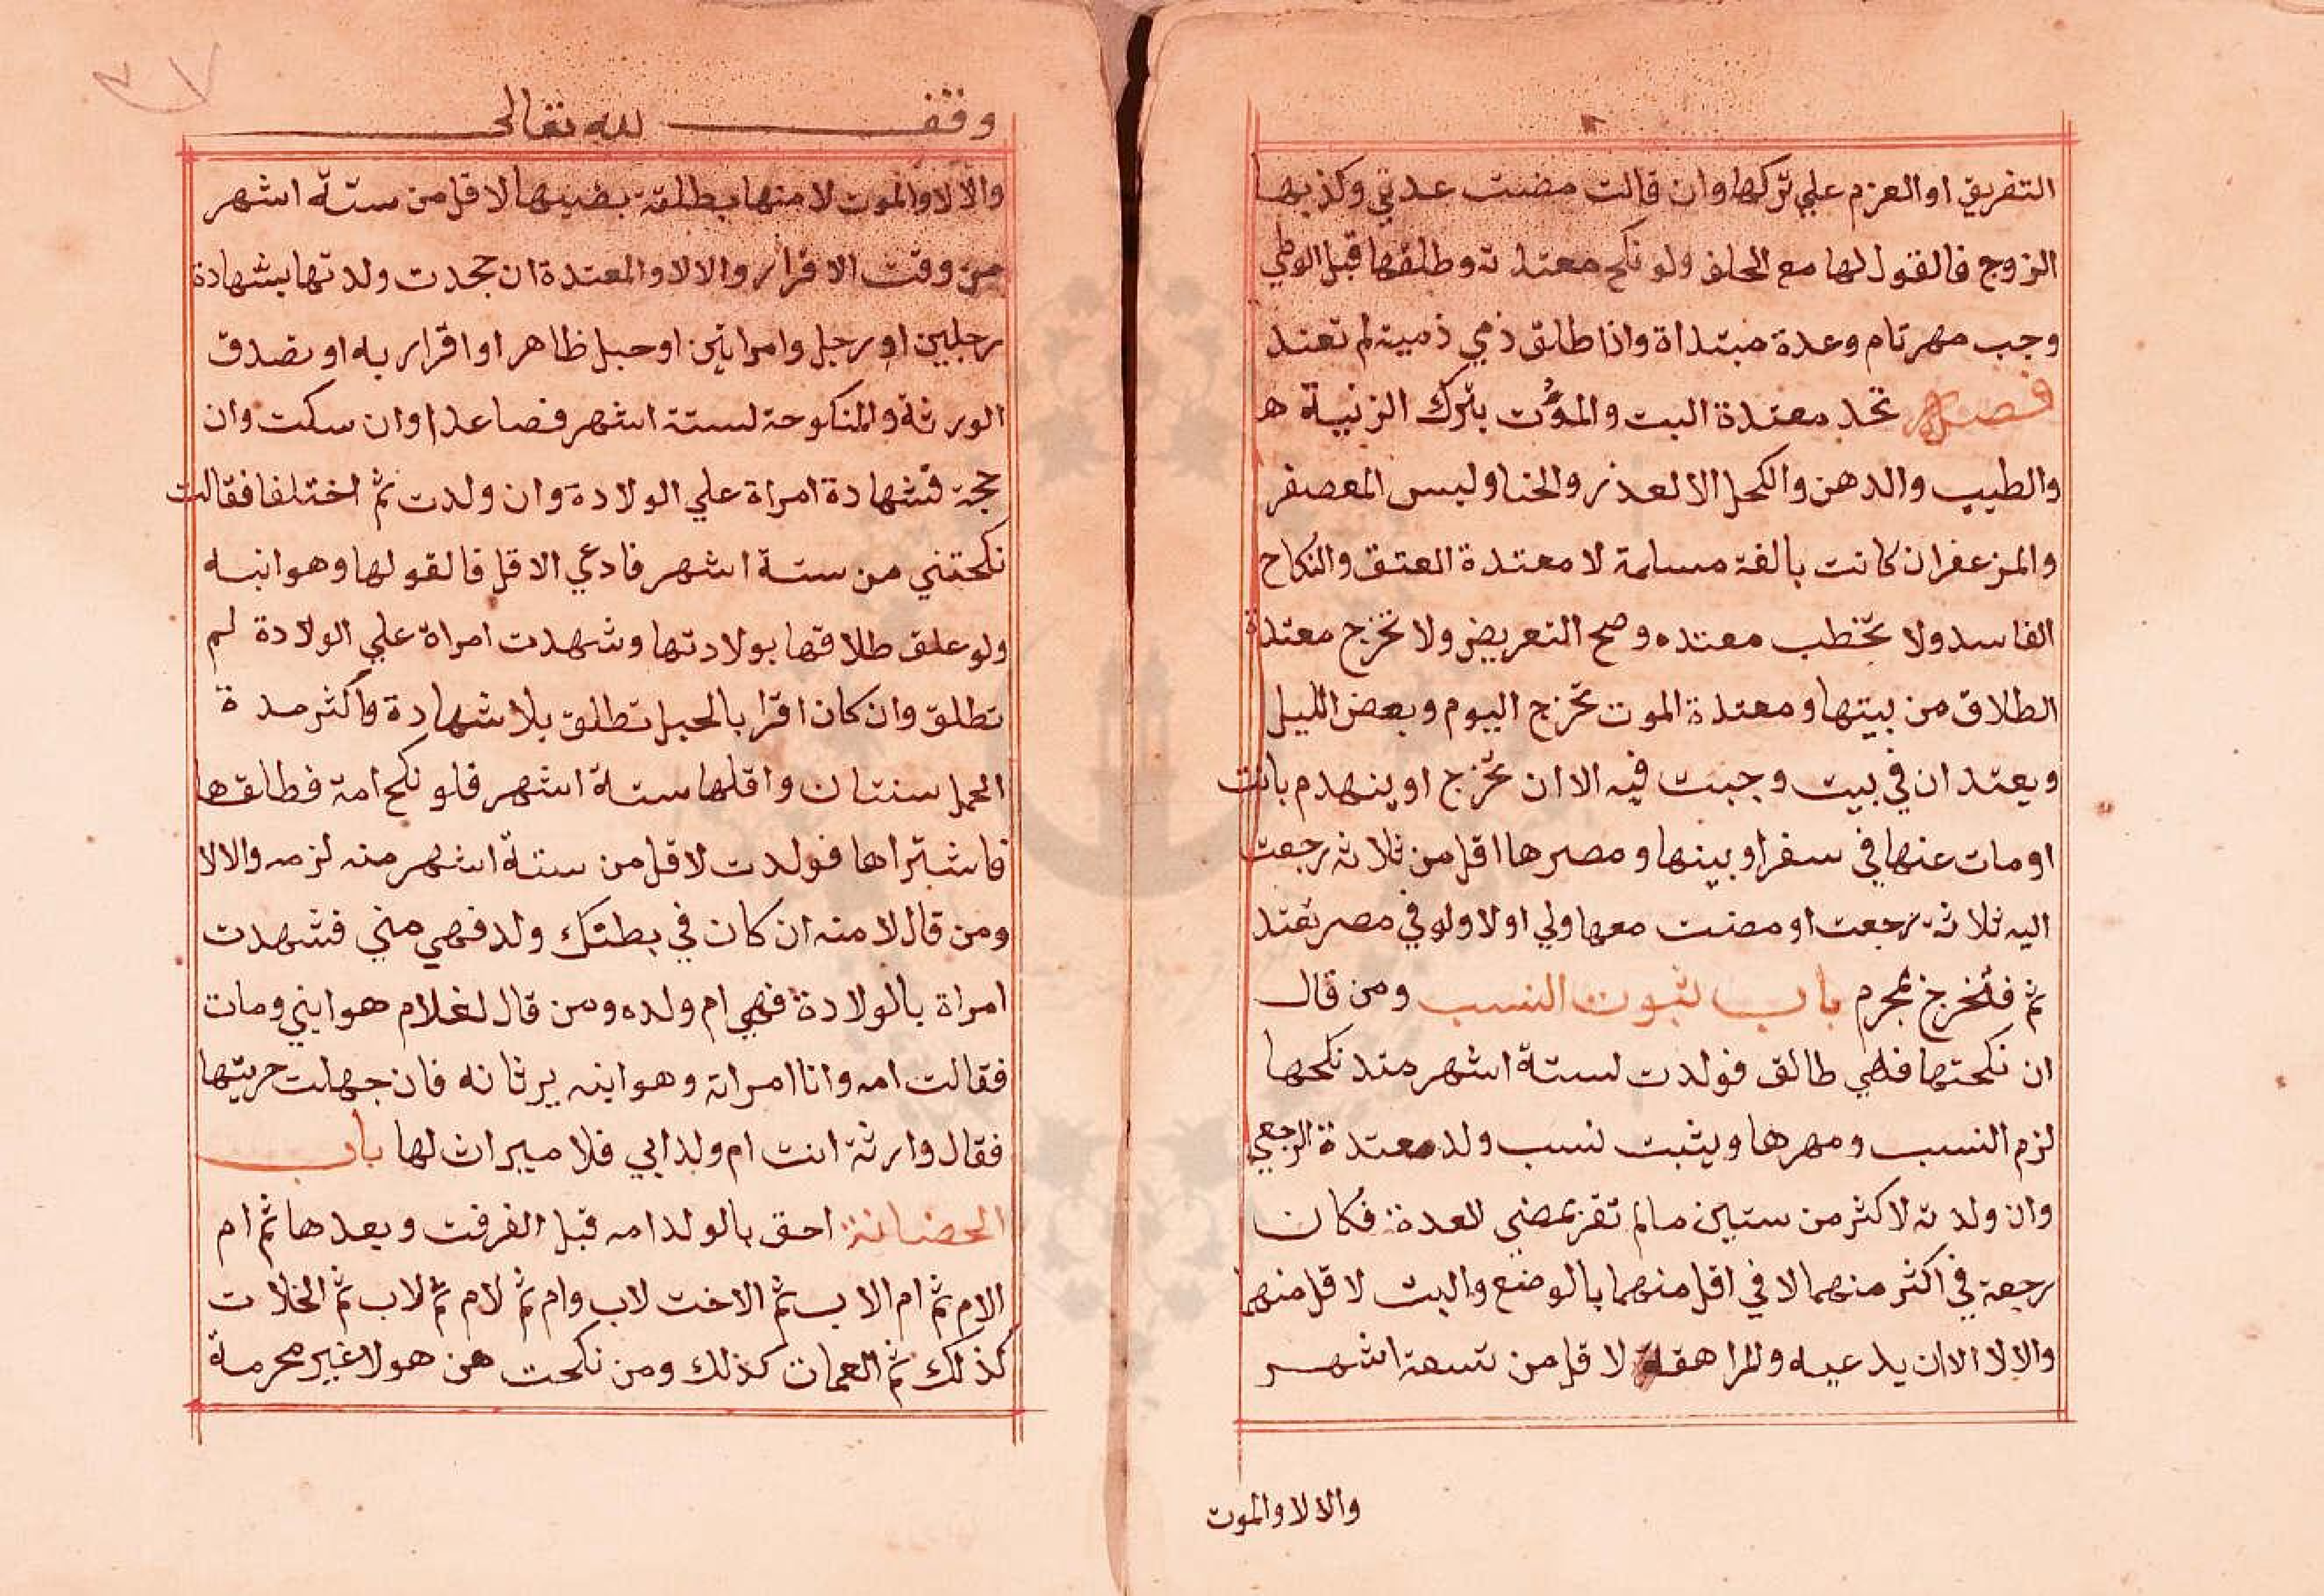 التفريق او العزم علي تركها وان قالت مضت عدتي وكذبها
الزوج فالقول لها مع الحلف ولو نكح معتدته وطلقها قبل الوطي
وجب مهر تام وعدة مبتداة واذا طلق ذمي ذمية لم تعتد
فصل تحد معتدة البت والموت بترك الزنية هـ
والطيب والدهن والكحل الا لعذر والحنا ولبس المعصفر
والمزعفران كانت بالغة مسلمة لا معتدة العتق والنكاح
الفاسد ولا تخطب معتده وصح التعريض ولا تخرج معتدة
الطلاق من بيتها ومعتدة الموت تخرج اليوم وبعض الليل
ويعتدان في بيت وجبت فيه الا ان تخرج او ينهدم بانت
او مات عنها في سفر او بينها ومصرها اقل من ثلاثه رجعت
اليه ثلاثة رجعت او مضت معها ولي او لا ولو في مصر تعتد
ثم فتخرج بمجرم باب ثبوت النسب ومن قال
ان نكحتها فهي طالق فولدت لستة اشهر منذ نكحها
لزم النسب ومهرها ويثبت نسب ولد معتدة الرجعي
وان ولدته لاكثر من سنتين مالم تقر بمضي العدة فكان
رجعة في اكثر منهما لا في اقل منهما بالوضع والبت لاقل منهما
والا لا الا ان يدعيه والمراهقة لاقل من تسعة اشهر
والا لا والموت
وقف لله تعالى
والا لا والموت لا منها بطلقة بضيها لاقل من ستة اشهر
من وقت الاقرار والا لا والمعتدة ان جحدت ولدتها بشهادة
رجلين او رجل وامراتين او حبل ظاهر او اقرار به او تصدق
الورثة والمنكوحة لستة اشهر فصاعدا وان سكت وان
جحد فشهادة امراة علي الولادة وان ولدت ثم اختلفا فقالت
نكحتني من ستة اشهر فادعي الاقل فالقو لها وهو ابنه
ولو علق طلاقها بولادتها وشهدت امراة علي الولادة لم
تطلق وان كان اقرا بالحبل تطلق بلا شهادة واكثر مدة
الحمل سنتان واقلها ستة اشهر فلو نكح امة فطلقها
فاشتراها فولدت لاقل من ستة اشهر منه لزمه والا لا
ومن قال لامته ان كان في بطنك ولد فهي مني فشهدت
امراة بالولادة فهي ام ولده ومن قال لغلام هو ابني ومات
فقالت امه وانا امراته وهو ابنه يرثانه فان جهلت حريتها
فقال وارثه انت ام ولد ابي فلا ميراث لها باب
الحضانة احق بالولد امه قبل الفرقت وبعدها ثم ام
الام ثم ام الاب ثم الاخت لاب وام ثم لام ثم لاب ثم الخلات
كذلك ثم العمات كذلك ومن نكحت هن هولا غير محرمة